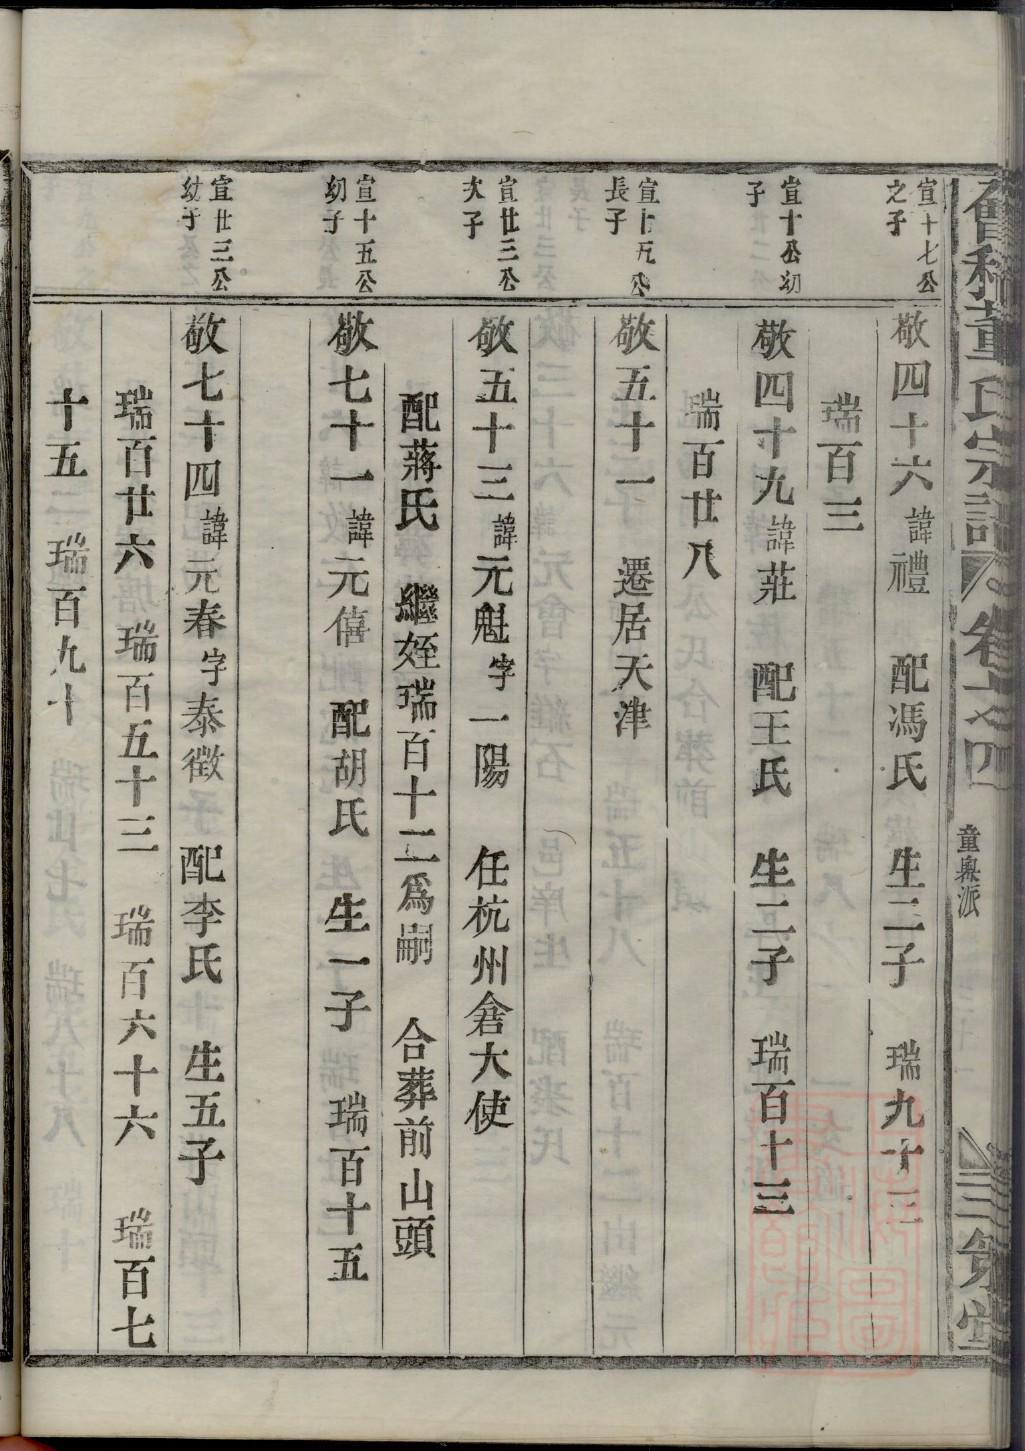 會稽董氏宗譜
卷十之四
童墺派
三策堂
宣十七公
之子
敬四十六諱禮　配馮氏　生二子　瑞九十三
瑞百三
宣十公幼
子
敬四十九諱莊　配王氏　生二子　瑞百十三
瑞百廿八
宣十五公
長子
敬五十一　遷居天津
宣廿三公
次子
敬五十三諱元魁字一陽　任杭州倉大使
配蔣氏　繼姪瑞百十二爲嗣　合葬前山頭
宣十五公
幼子
敬七十一諱元僖　配胡氏　生一子　瑞百十五
宣廿三公
幼子
敬七十四諱元春字泰徵　配李氏　生五子
瑞百廿六　瑞百五十三　瑞百六十六　瑞百七
十五　瑞百九十